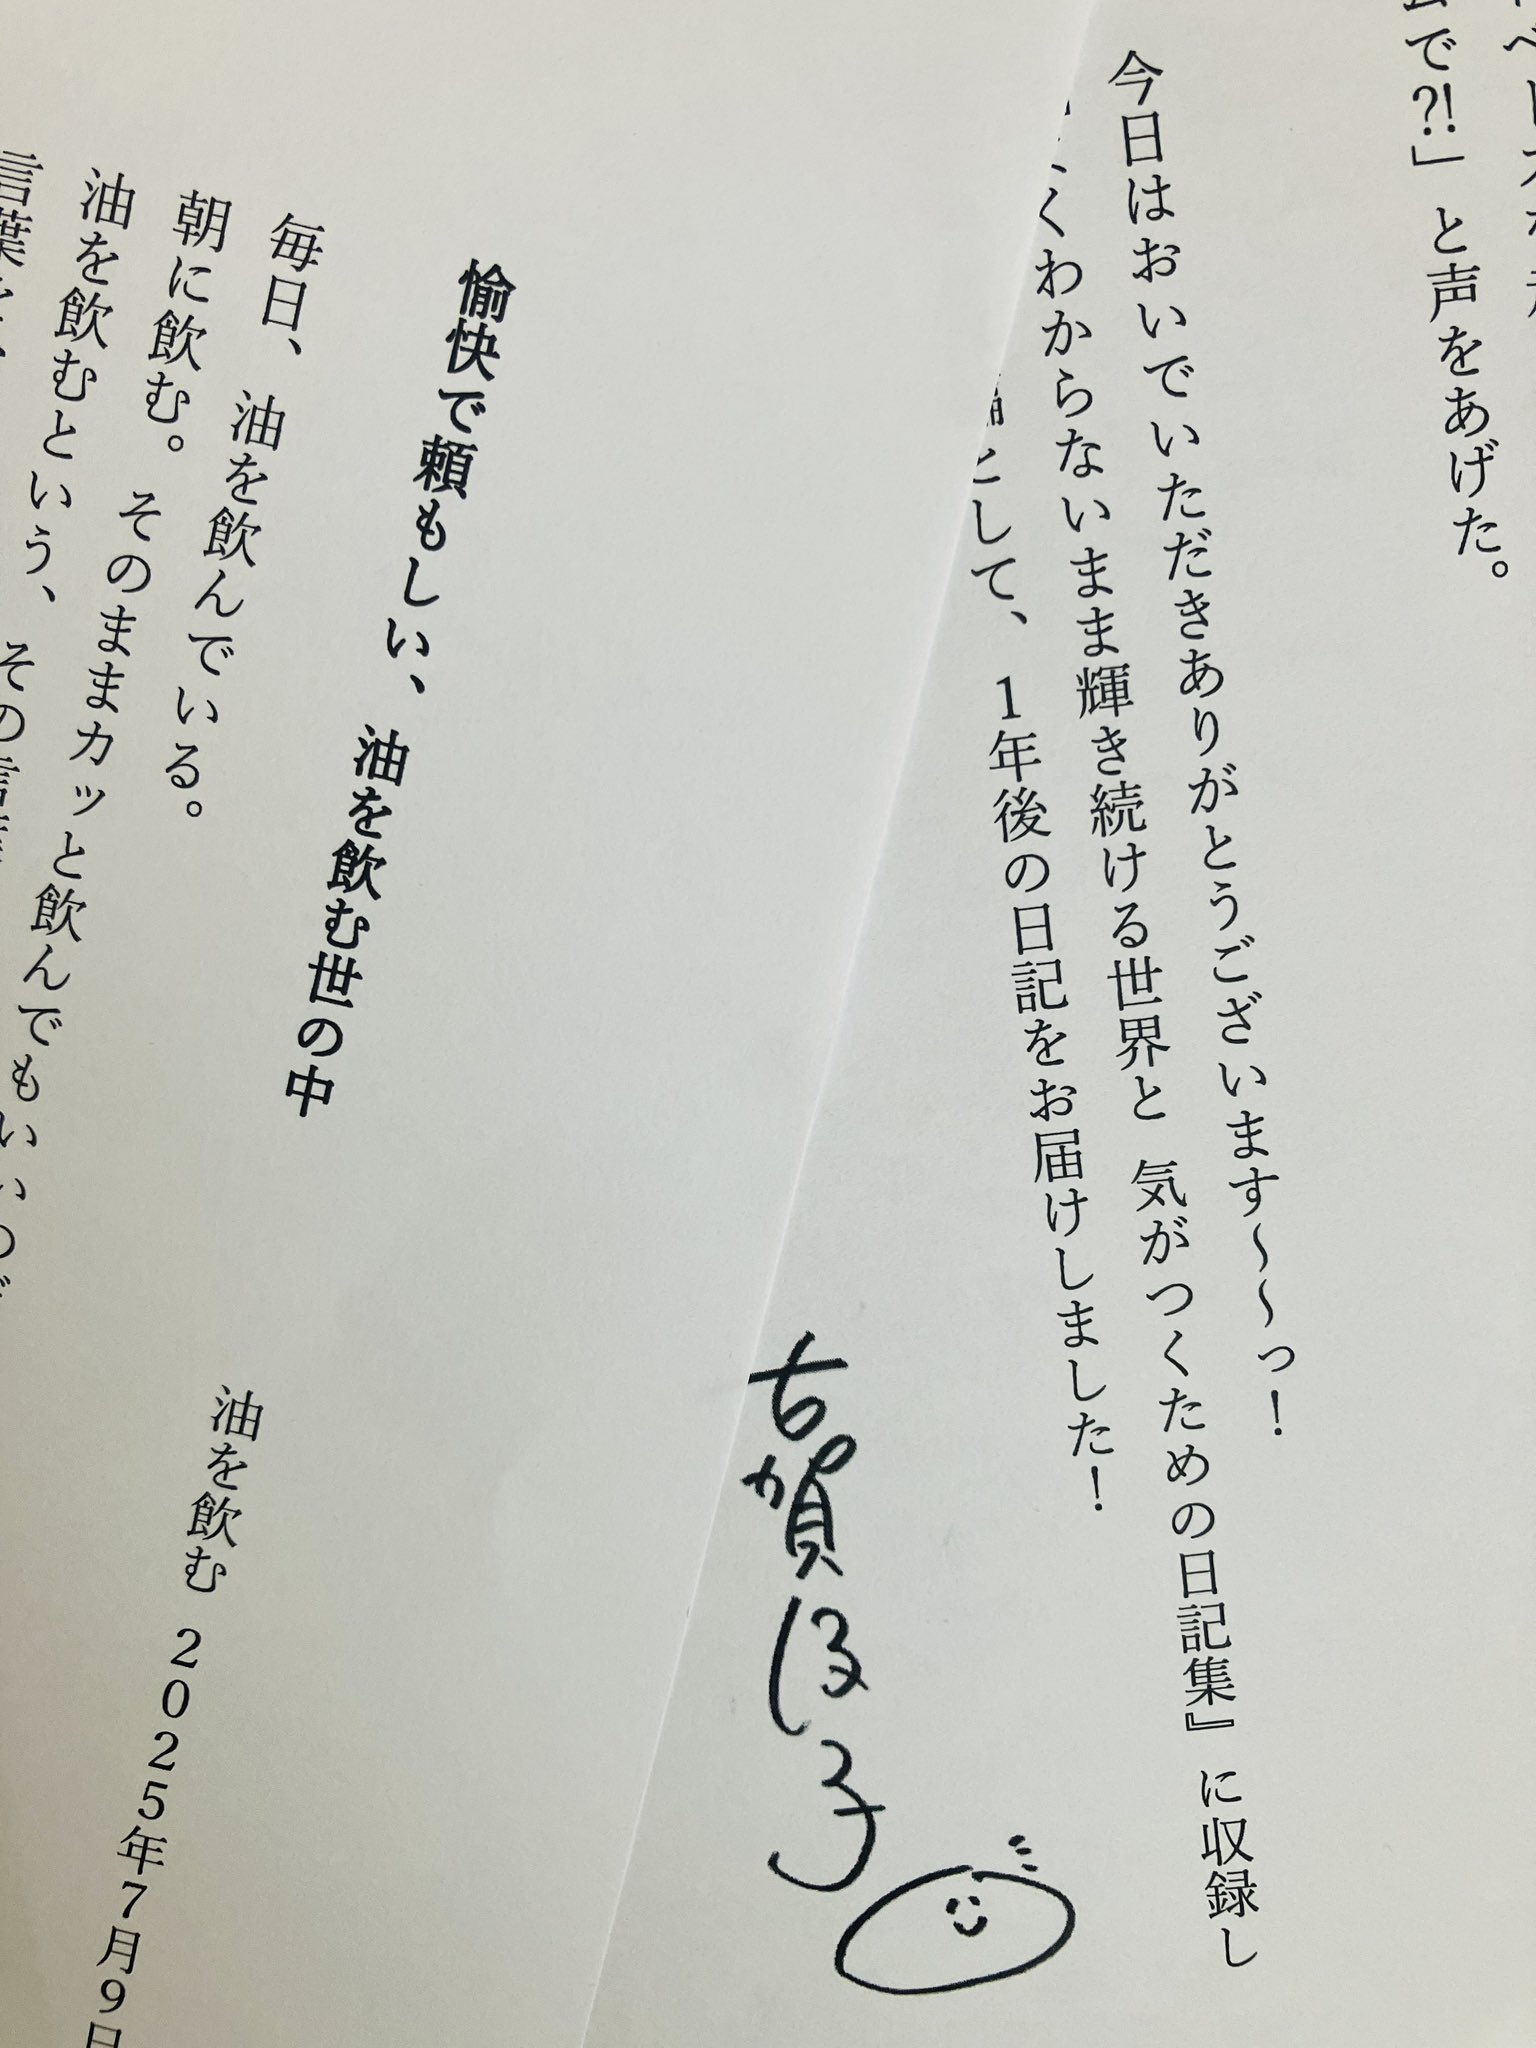 で?!」と声をあげた。
今日はおいでいただきありがとうございます〜〜っ!
くわからないまま輝き続ける世界と 気がつくための日記集』に収録し
として、1年後の日記をお届けしました!
古賀及子
愉快で頼もしい、油を飲む世の中
油を飲む 2025年7月9日
毎日、油を飲んでいる。
朝に飲む。そのままカッと飲んでもいい
油を飲むという、その言
言葉